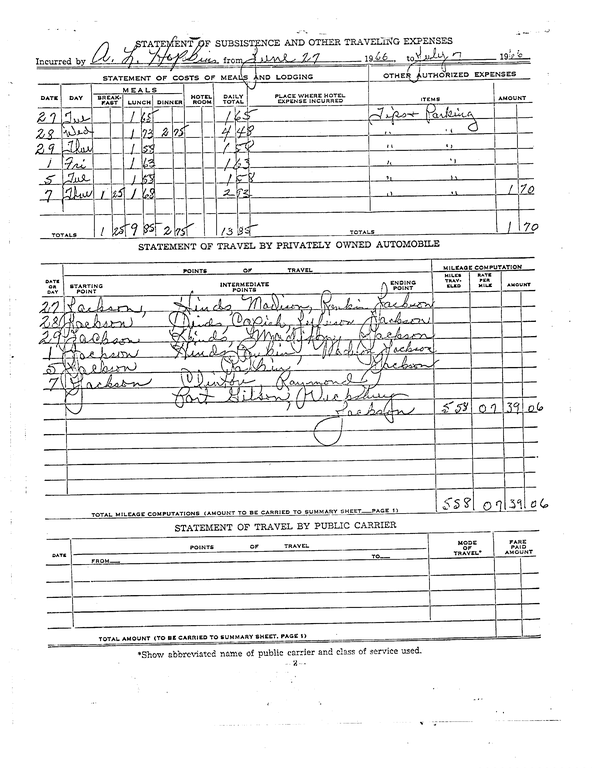 STATEMENT OF SUBSISTENCE AND OTHER TRAVELING EXPENSES
Incurred by A. L. Hopkins from June 27 1966 to July 7 1966
STATEMENT OF COSTS OF MEALS AND LODGING OTHER AUTHORIZED EXPENSES
DATE DAY MEALS BREAK-FAST LUNCH DINNER HOTEL ROOM DAILY TOTAL PLACE WHERE HOTEL EXPENSE INCURRED ITEMS AMOUNT
27 Tue 1 65 1 65 Tips & Parking
28 Wed 1 73 2 75 4 48 " "
29 Thu 1 58 1 58 " "
1 Fri 1 63 1 63 " "
5 Tue 1 58 1 58 " "
7 Thu 1 25 1 68 2 93 " " 1 70
TOTALS 1 25 9 85 2 75 13 85 TOTALS 1 70
STATEMENT OF TRAVEL BY PRIVATELY OWNED AUTOMOBILE
POINTS OF TRAVEL MILEAGE COMPUTATION
DATE OR DAY STARTING POINT INTERMEDIATE POINTS ENDING POINT MILES TRAV-ELED RATE PER MILE AMOUNT
27 Jackson, Hinds, Madison, Rankin Jackson
28 Jackson Hinds Copiah, Jefferson Jackson
29 Jackson Hinds, Jackson
1 Jackson Hinds, Rankin, Madison Jackson
5 Jackson Jackson
7 Jackson Clinton Raymond,
Port Gibson, Vicksburg
Jackson 558 07 39 06
TOTAL MILEAGE COMPUTATIONS (AMOUNT TO BE CARRIED TO SUMMARY SHEET PAGE 1) 558 07 39 06
STATEMENT OF TRAVEL BY PUBLIC CARRIER
DATE POINTS OF TRAVEL MODE OF TRAVEL* FARE PAID AMOUNT
FROM TO
TOTAL AMOUNT (TO BE CARRIED TO SUMMARY SHEET, PAGE 1)
*Show abbreviated name of public carrier and class of service used.
--2--